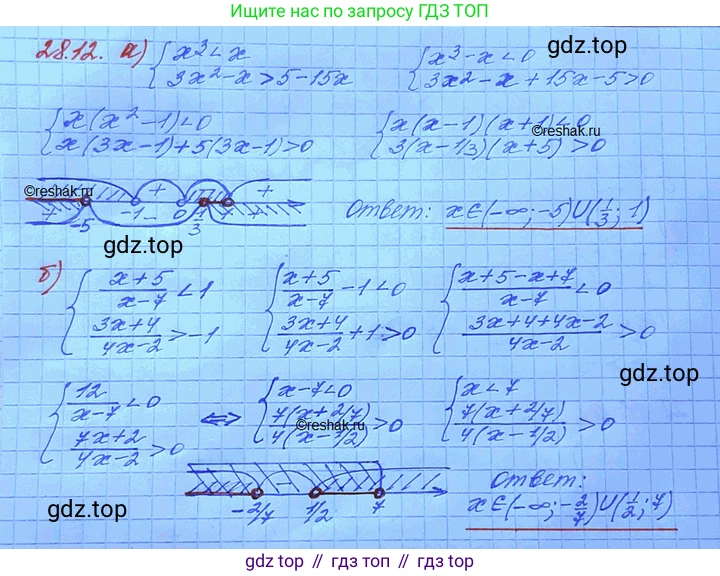 Ищите нас по запросу ГДЗ ТОП
28.12. а) { x³<x { x³-x<0
{ 3x²-x>5-15x { 3x²-x+15x-5>0
gdz.top
{ x(x²-1)<0 { x(x-1)(x+1)<0
{ x(3x-1)+5(3x-1)>0 { 3(x-1/3)(x+5)>0
©reshak.ru
©reshak.ru
+ +
+ -5 -1 - 0 1/3 1 +
Ответ: x∈(-∞;-5)∪(1/3;1)
gdz.top
б) { (x+5)/(x-7)<1 { (x+5)/(x-7)-1<0 { (x+5-x+7)/(x-7)<0
{ (3x+4)/(4x-2)>-1 { (3x+4)/(4x-2)+1>0 { (3x+4+4x-2)/(4x-2)>0
gdz.top
{ 12/(x-7)<0 ⇔ { x-7<0 { x<7
{ (7x+2)/(4x-2)>0 { 7(x+2/7)/4(x-1/2)>0 { 7(x+2/7)/4(x-1/2)>0
©reshak.ru
-2/7 1/2 7
Ответ:
x∈(-∞;-2/7)∪(1/2;7)
gdz.top
gdz.top // гдз топ // gdz top